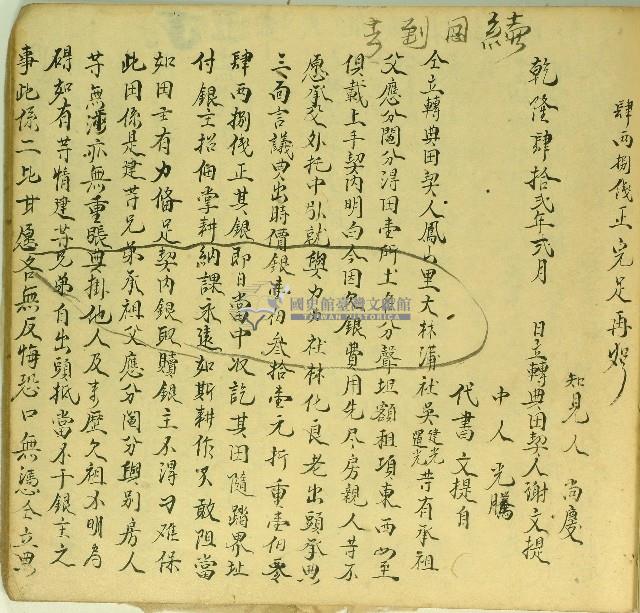 肆両捌錢正完足再炤
知見人 尚慶
乾隆肆拾弍年弍月 日立轉典田契人謝文提
中人 光騰
代書 文提自
續 田 到 去
仝立轉典田契人鳳山里大林蒲社吳建光 光等有承祖
父應分鬮分淂田壹所土 分聲坵額租項東西四至
俱載上手契內明白今因欠銀費用先尽房親人等不
愿承受外托中引就與 社林化良老出頭承典
三面言議典出時價銀壹佰叁拾壹元折重壹佰
肆両捌錢正其銀即日當中収訖其田隨踏界址
付銀主招佃掌耕納課永遠如斯耕作不敢阻當
如田主有力俻足契內銀取贖銀主不得刁难保
此田係是建等兄弟承祖父應分鬮分與別房人
等無涉亦無重賬典掛他人及來歷欠租不明為
碍如有等情建等兄弟自出頭抵當不干銀主之
事此係二比甘愿各無反悔恐口無憑仝立典
國史館臺灣文獻館
TAIWAN HISTORICA